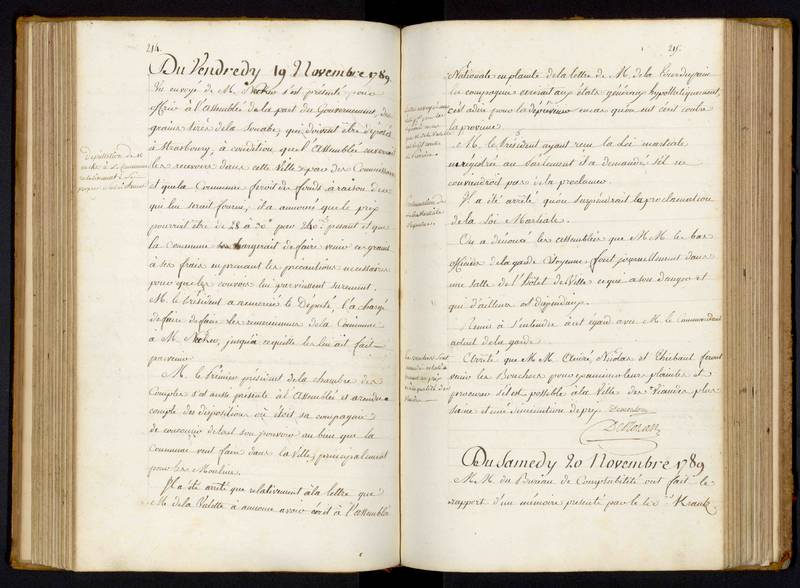 214.
Du Vendredy 19 Novembre 1789
Un envoyé de M. Necker s'est présenté pour
offrir à l'Assemblée de la part du Gouvernement, des
grains tirés de la Souabe, qui doivent être déposés
à Strasbourg, à condition que l'Assemblée enverrait
les recevoir dans cette Ville par des Commissaires
et que la Commune feroit des fonds à raison de ce
qui lui serait fourni, il a annoncé que le prix
pourrait être de 28 à 30 pour 240 pesant et que
la Commune se chargerait de faire venir ces grains
à ses frais en prenant les précautions nécessaires
pour que les convois lui parviennent surement.
M. le Président a remercié le Député, l'a chargé
de faire les remercimens de la Commune
à M. Necker, jusqu'à ce qu'elle les lui ait fait
parvenir.
M. le Premier président de la chambre des
Comptes s'est aussi présenté à l'Assemblée et a rendu
compte des dispositions où étoit sa compagnie
de concourir de tout son pouvoir au bien que la
Commune veut faire dans la Ville, principalement
pour les Moulins.
Il a été arrêté que relativement à la lettre que
M. de la Valette a annoncé avoir écrit à l'assemblée
Députation de M.
215.
Nationale en plainte de la lettre de M. de la
la compagnie écrirait aux états généraux hypothétiquement,
c'est à dire pour la en cas qu'on eut écrit contre
la province.
M. le Président ayant reçu la Loi martiale
enrégistrée au Parlement il a demandé s'il ne
conviendroit pas de la proclamer.
Il a été arrêté qu'on suspendrait la proclamation
de la Loi Martiale.
On a dénoncé les assemblées que MM. les bas
Officiers de la garde Citoyenne font journellement dans
une salle de l'hôtel de Ville ce qui a son danger et
qui d'ailleurs est dispendieux.
Remis à s'entendre à cet égard avec M. le Commandant
actuel de la garde.
Arrêté que MM. André, Nicolas et Thiébaut feront
venir les Bouchers pour examiner leurs plaintes et
procurer s'il est possible à la Ville des Viandes plus
saine et une diminution de prix
Du Samedy 20 Novembre 1789
MM. du Bureau de Comptabilité ont fait le
rapport d'un mémoire présenté par le Sr Krantz